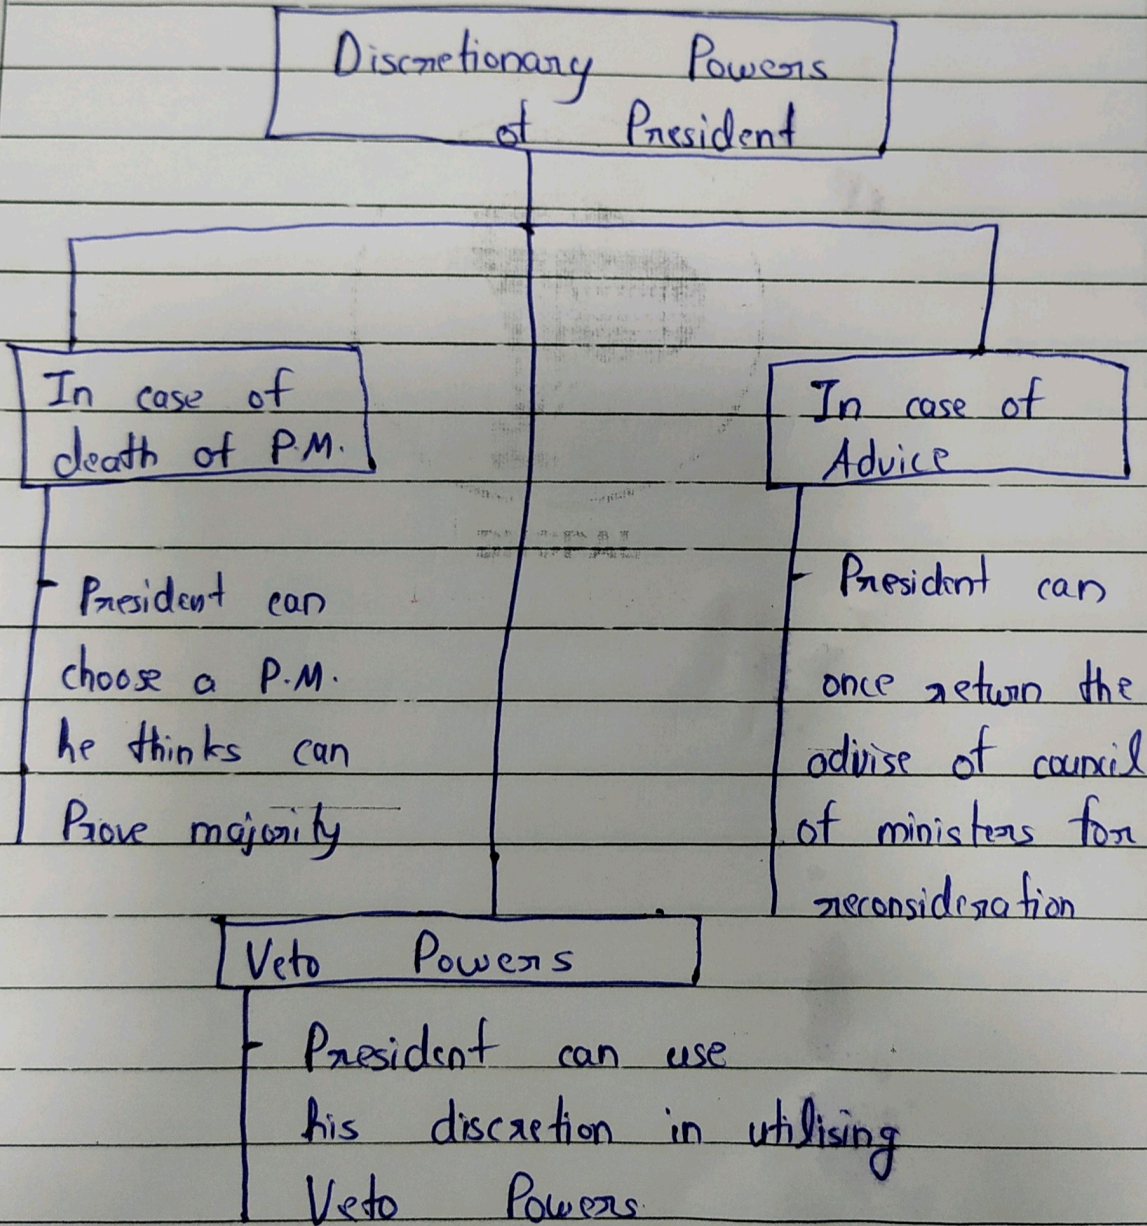 Discretionary Powers
of President
In case of
death of P.M.
President can
choose a P.M.
he thinks can
Prove majority
In case of
Advice
President can
once return the
advise of council
of ministers for
reconsideration
Veto Powers
President can use
his discretion in utilising
Veto Powers.